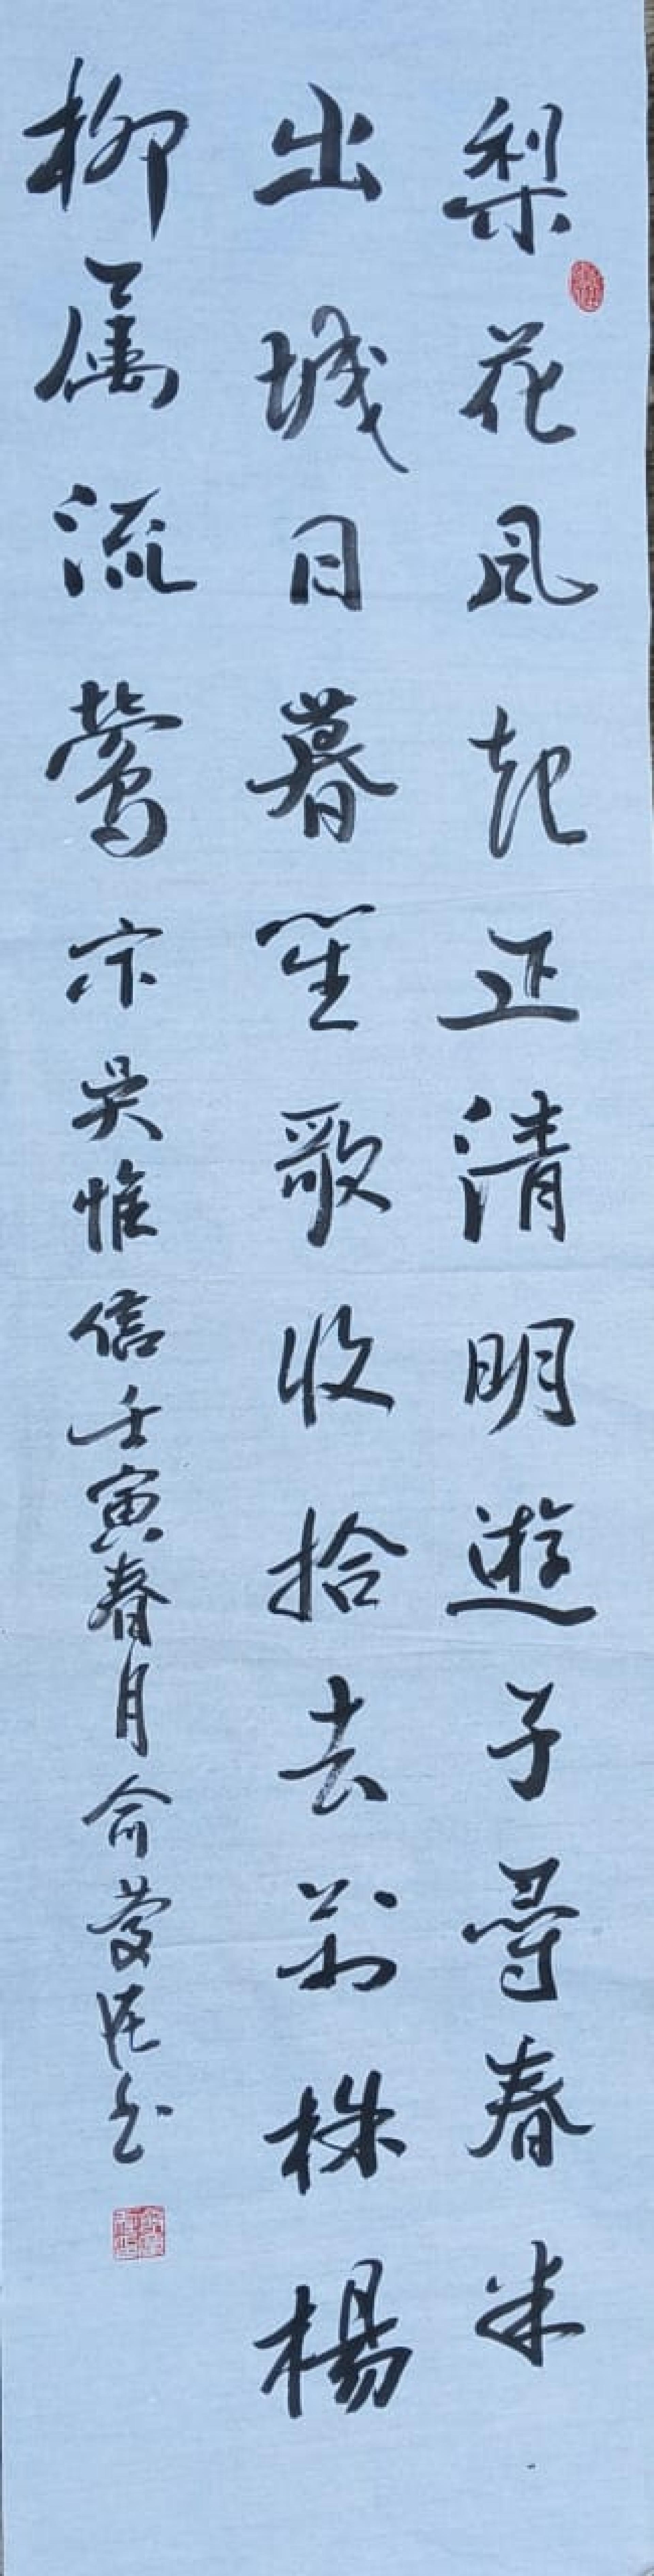 梨花风起正清明遊子尋春半
出城日暮笙歌收拾去万株楊
柳属流莺宋吴惟信壬寅春月俞慶民书